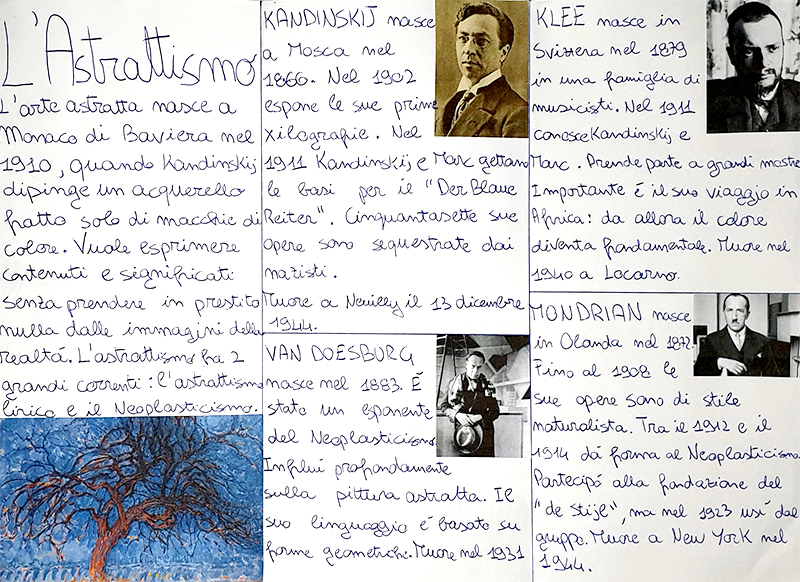 L'Astrattismo
L'arte astratta nasce a
Monaco di Baviera nel
1910, quando Kandinskij
dipinge un acquerello
fatto solo di macchie di
colore. Vuole esprimere
contenuti e significati
senza prendere in prestito
nulla dalle immagini della
realtá. L'astrattismo ha 2
grandi correnti: l'astrattismo
lirico e il Neoplasticismo.
KANDINSKIJ nasce
a Mosca nel
1866. Nel 1902
espone le sue prime
xilografie. Nel
1911 Kandinskij e Marc gettano
le basi per il "Der Blaue
Reiter". Cinquantasette sue
opere sono sequestrate dai
nazisti.
Muore a Neuilly il 13 dicembre
1944.
VAN DOESBURG
nasce nel 1883. É
stato un esponente
del Neoplasticismo
Influí profondamente
sulla pittura astratta. Il
suo linguaggio é basato su
forme geometriche. Muore nel 1931
KLEE nasce in
Svizzera nel 1879
in una famiglia di
musicisti. Nel 1911
conosce Kandinskij e
Marc. Prende parte a grandi mostre
Importante é il suo viaggio in
Africa: da allora il colore
diventa fondamentale. Muore nel
1940 a Locarno.
MONDRIAN nasce
in Olanda nel 1872.
Fino al 1908 le
sue opere sono di stile
naturalista. Tra il 1912 e il
1914 dá forma al Neoplasticismo.
Partecipó alla fondazione del
"de Stijl", ma nel 1923 uscí dal
gruppo. Muore a New York nel
1944.